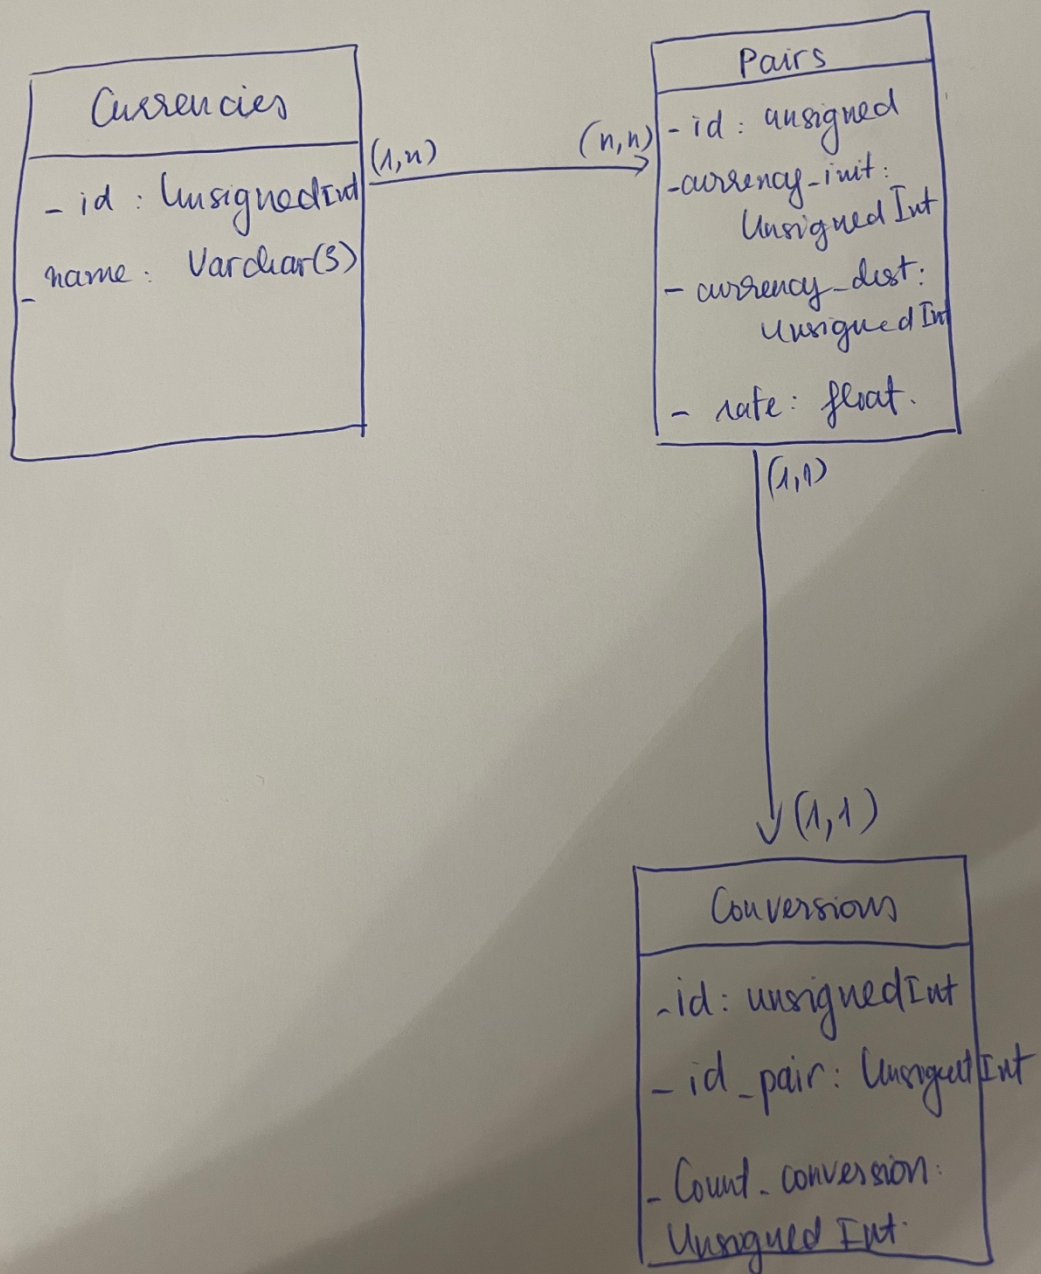 Currencies
- id : UnsignedInt
- name : Varchar(3)
(1,n)
(n,n)
Pairs
- id : unsigned
- currency_init :
Unsigned Int
- currency_dest :
Unsigned Int
- rate : float.
(1,1)
(1,1)
Conversions
- id : unsignedInt
- id_pair : Unsigned Int
- Count_conversion :
Unsigned Int.